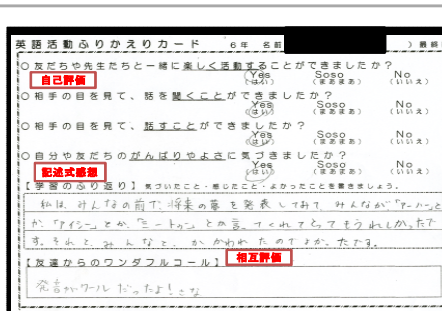 英語活動ふりかえりカード 6年 名前
○友だちや先生たちと一緒に楽しく活動することができましたか？
自己評価
Yes Soso No
(はい) (まあまあ) (いいえ)
○相手の目を見て、話を聞くことができましたか？
Yes Soso No
(はい) (まあまあ) (いいえ)
○相手の目を見て、話すことができましたか？
Yes Soso No
(はい) (まあまあ) (いいえ)
○自分や友だちのがんばりやよさに気づきましたか？
記述式感想
Yes Soso No
(はい) (まあまあ) (いいえ)
【学習のふり返り】気づいたこと・感じたこと・よかったことを書きましょう。
私は、みんなの前で、将来の夢を発表してみて、みんなが「アーハー」と
か、「アイシー」とか、「ミートゥー」とか言ってくれてとってもうれしかったで
す。それと、みんなと、かかわれたのでよかったです。
【友達からのワンダフルコール】 相互評価
発言がクールだったよ！